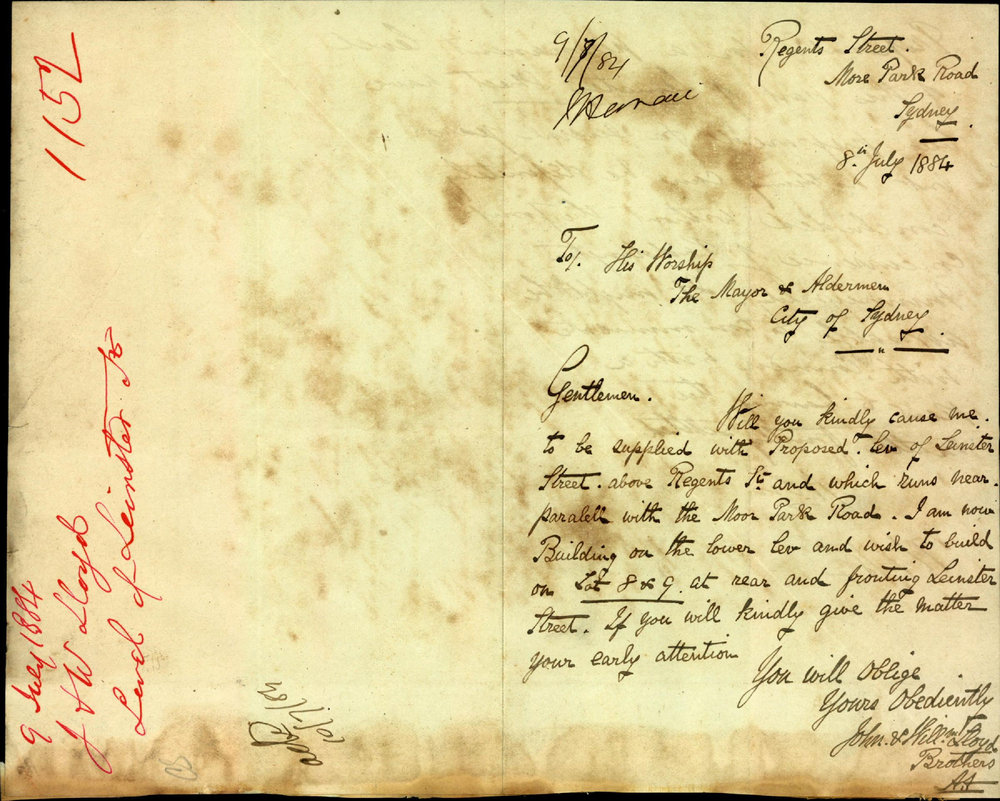 1152
9 July 1884
J & W Lloyd
Level of Leinster St
9/7/84
Regents Street.
More Park Road
Sydney.
8th July 1884
To/. His Worship
The Mayor & Aldermen
City of Sydney.
Gentlemen.
Will you kindly cause me.
to be supplied with Proposed. Lev of Leinster
Street. above Regents St. and which runs near.
paralell with the Moor Park Road. I am now
Building on the lower Lev and wish to build
on Lot 8 & 9. at rear and fronting Leinster
Street. If you will kindly give the matter
your early attention
You will Oblige
Yours Obediently
John. & Willm Lloyd
Brothers
10/7/84